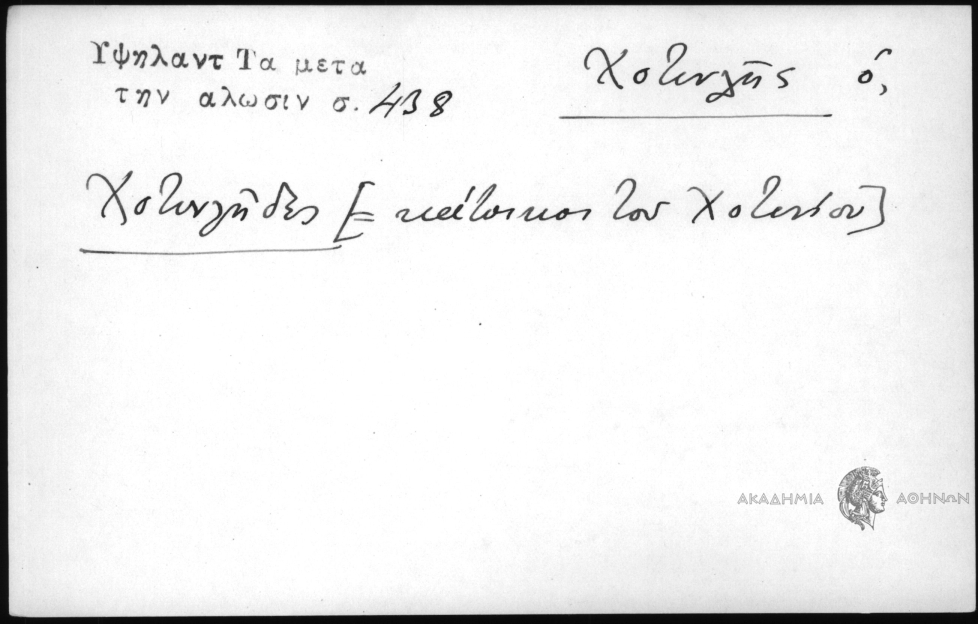 Υψηλαντ Τα μετα
την αλωσιν σ. 438
Χοτινλῆς ὁ,
Χοτινλῆδες [= κάτοικοι του Χοτινίου]
ΑΚΑΔΗΜΙΑ ΑΘΗΝΩΝ